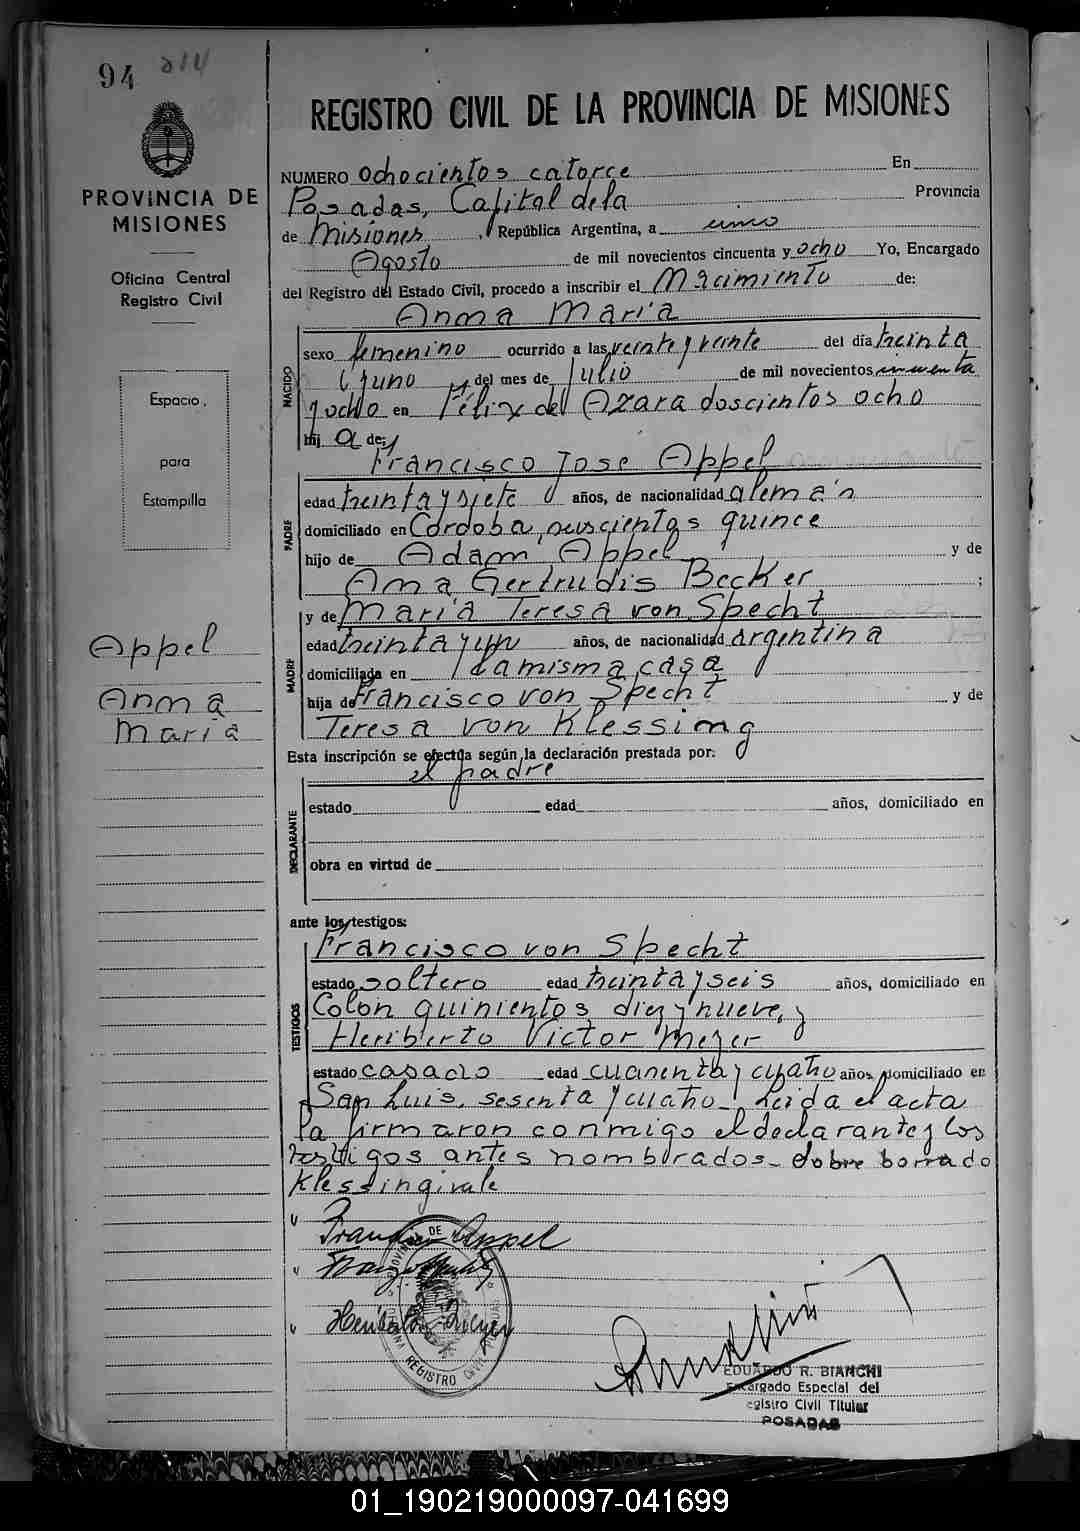 94 214
REGISTRO CIVIL DE LA PROVINCIA DE MISIONES
PROVINCIA DE
MISIONES
Oficina Central
Registro Civil
Espacio
para
Estampilla
Appel
Anna
Maria
NUMERO ochocientos catorce En
Posadas, Capital de la Provincia
de Misiones, República Argentina, a cinco
Agosto de mil novecientos cincuenta y ocho Yo, Encargado
del Registro del Estado Civil, procedo a inscribir el Nacimiento de:
Anna María
NACIDO
sexo femenino ocurrido a las veinte y veinte del día treinta
y uno del mes de Julio de mil novecientos cincuenta
y ocho en Félix de Azara doscientos ocho
hij a de:
Francisco Jose Appel
PADRE
edad treinta y siete años, de nacionalidad alemán
domiciliado en Cordoba, quince
hijo de Adam Appel y de
Ana Gertrudis Becker ;
y de María Teresa von Specht
MADRE
edad treinta y un años, de nacionalidad argentina
domiciliada en la misma casa
hija de Francisco von Specht y de
Teresa von Klessing
Esta inscripción se efectúa según la declaración prestada por:
el padre
DECLARANTE
estado edad años, domiciliado en
obra en virtud de
ante los testigos:
Francisco von Specht
TESTIGOS
estado soltero edad treinta y seis años, domiciliado en
Colon quinientos diez y nueve, y
Heriberto Victor Meyer
estado casado edad cuarenta y cuatro años, domiciliado en
San Luis, sesenta y cuatro. Leida el acta
la firmaron conmigo el declarante y los
testigos antes nombrados - sobre borrado
Klessing vale
Appel
EDUARDO R. BIANCHI
Encargado Especial del
egistro Civil Titular
POSADAS
REGISTRO CIVIL
01_190219000097-041699